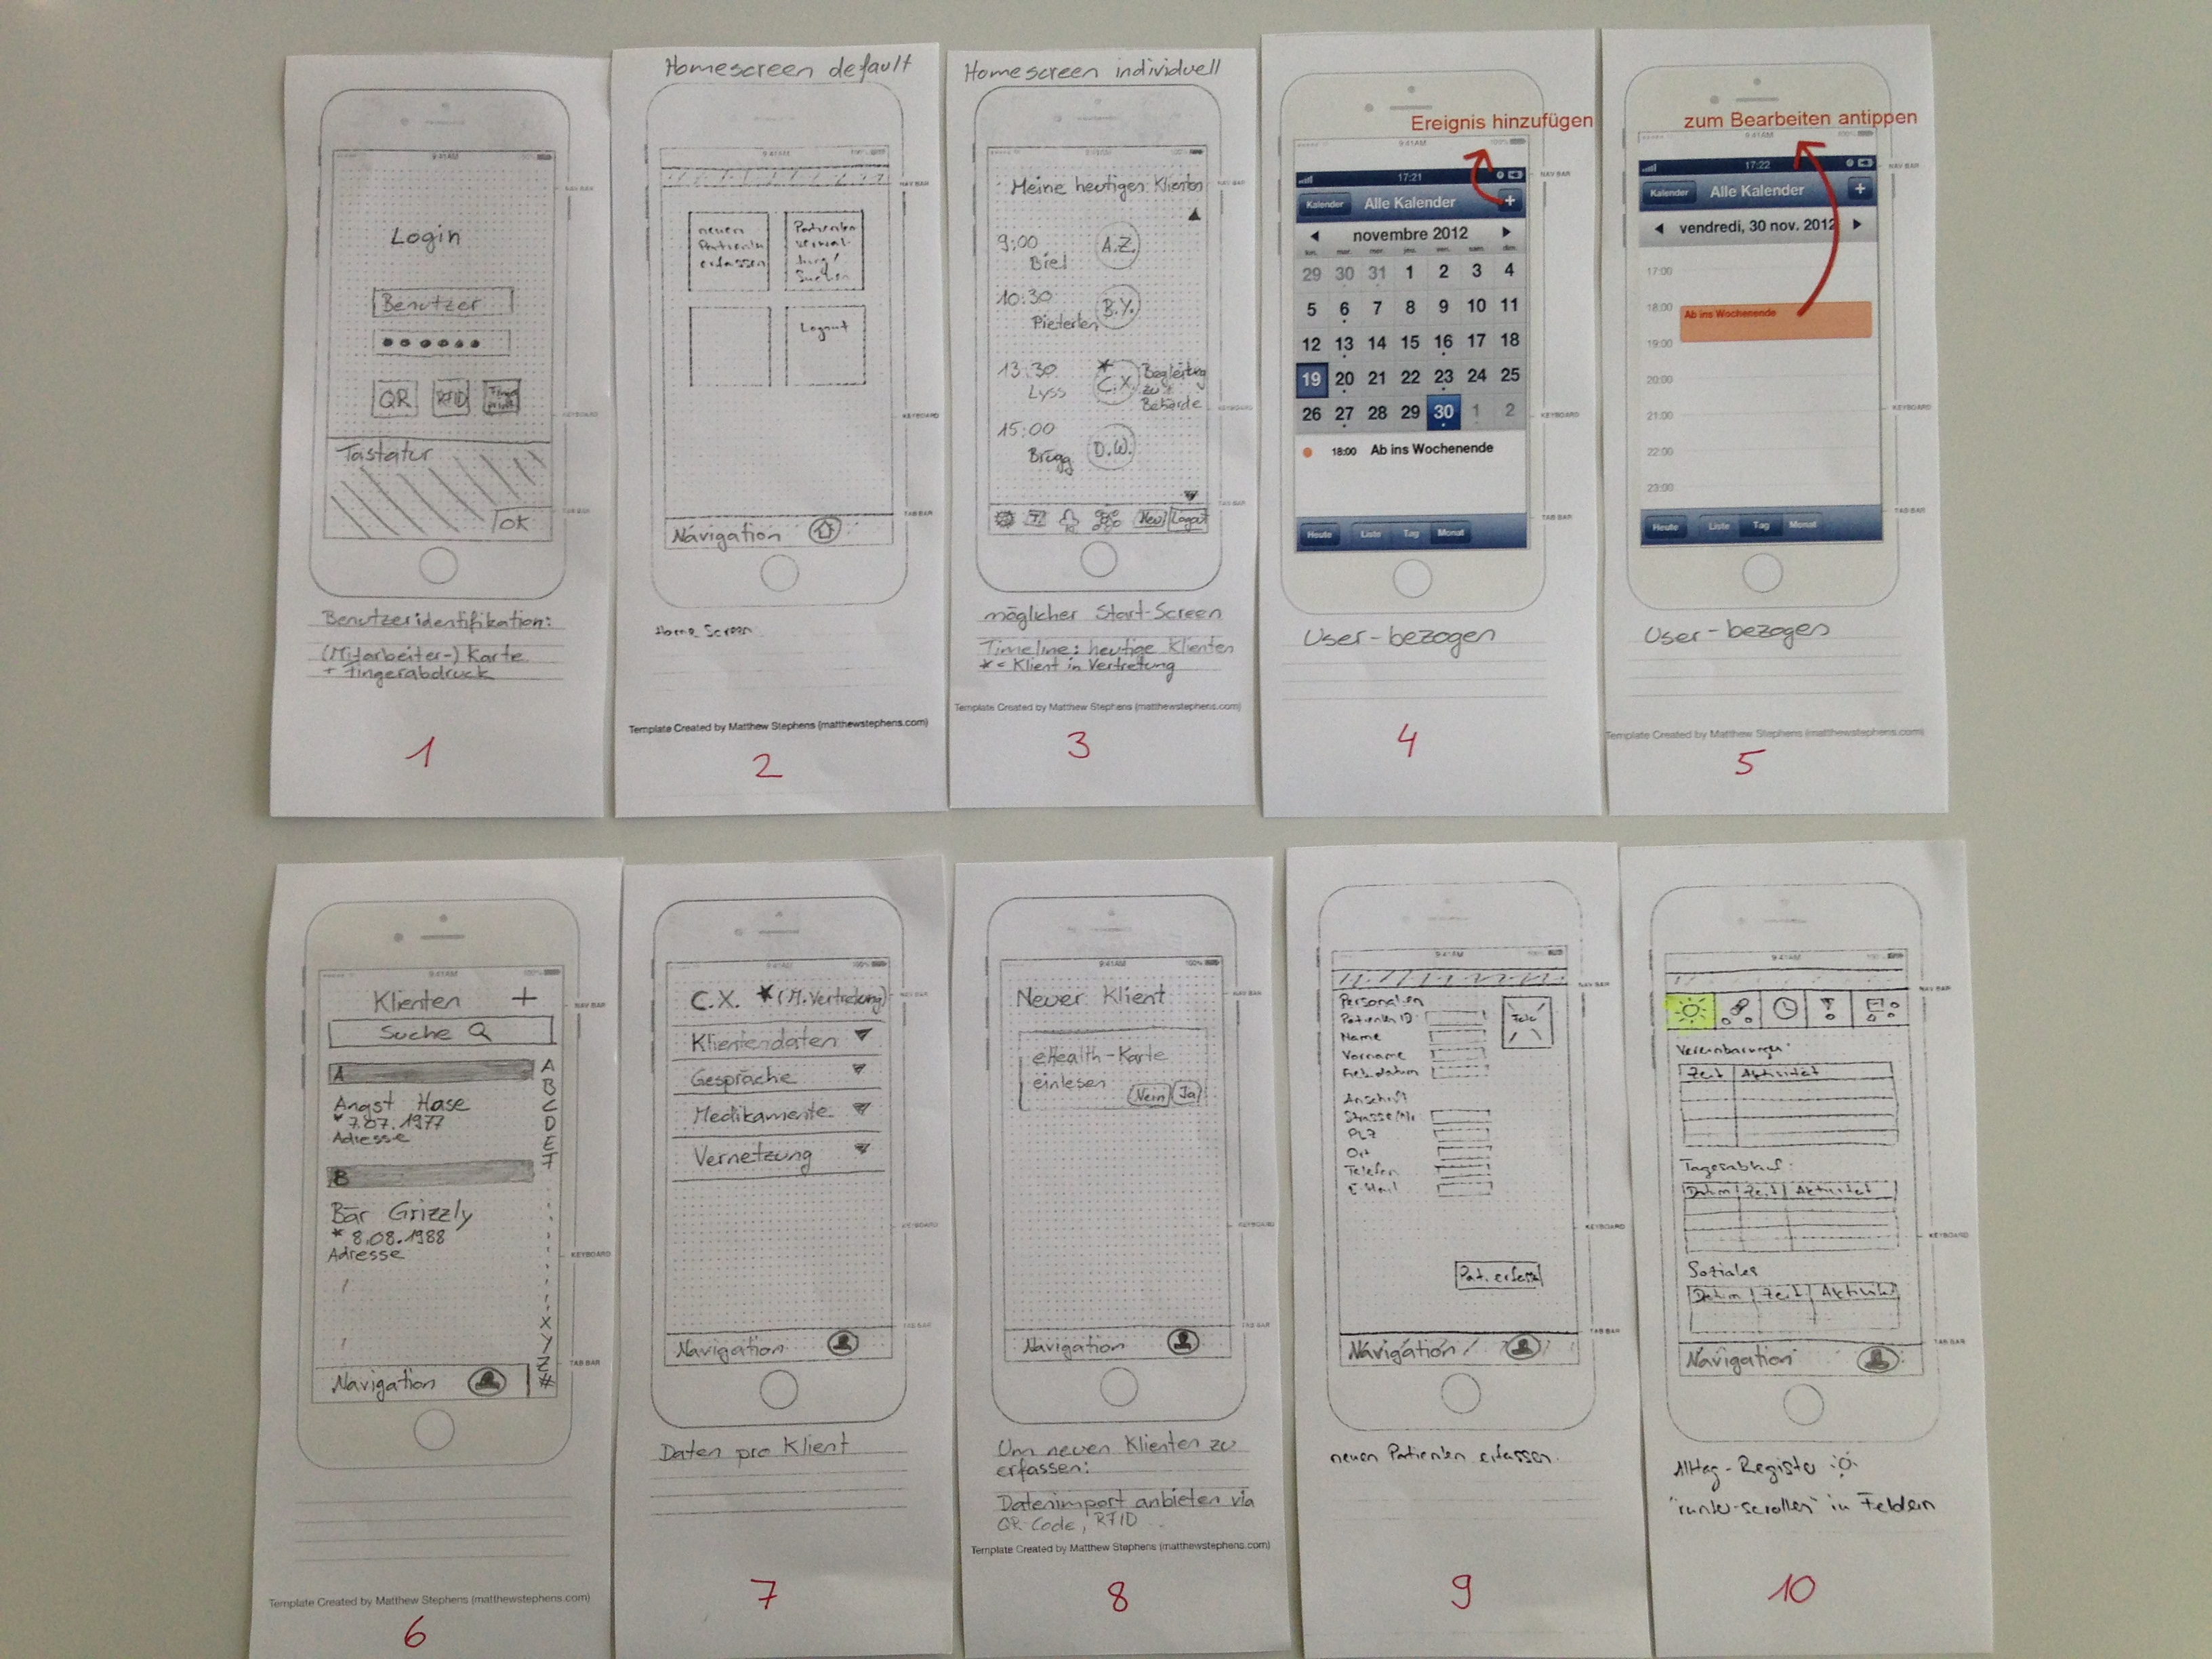 Homescreen default
Homescreen individuell
9:41AM
NAV BAR
Login
Benutzer
QR
RFID
KEYBOARD
Tastatur
TAB BAR
OK
Benutzeridentifikation:
(Mitarbeiter-) Karte
+ Fingerabdruck
1
9:41AM
100%
NAV BAR
neuen
Patienten
erfassen
Patienten
Suchen
Logout
KEYBOARD
TAB BAR
Navigation
Home Screen
Template Created by Matthew Stephens (matthewstephens.com)
2
9:41AM
100%
Meine heutigen Klienten
NAV BAR
9:00
A.Z.
Biel
10:30
B.Y.
Pieterlen
13:30
*
C.X.
Begleitung
zu
Behörde
Lyss
KEYBOARD
15:00
D.W.
Brügg
TAB BAR
Neu
Logout
möglicher Start-Screen
Timeline: heutige Klienten
* = Klient in Vertretung
Template Created by Matthew Stephens (matthewstephens.com)
3
Ereignis hinzufügen
9:41AM
100%
17:21
NAV BAR
Kalender
Alle Kalender
+
novembre 2012
lun. mar. mer. jeu. ven. sam. dim.
29 30 31 1 2 3 4
5 6 7 8 9 10 11
12 13 14 15 16 17 18
19 20 21 22 23 24 25
26 27 28 29 30 1 2
KEYBOARD
18:00 Ab ins Wochenende
TAB BAR
Heute Liste Tag Monat
User-bezogen
4
zum Bearbeiten antippen
9:41AM
100%
17:22
NAV BAR
Kalender
Alle Kalender
+
vendredi, 30 nov. 2012
17:00
18:00
Ab ins Wochenende
19:00
20:00
21:00
KEYBOARD
22:00
23:00
TAB BAR
Heute Liste Tag Monat
User-bezogen
Template Created by Matthew Stephens (matthewstephens.com)
5
9:41AM
100%
Klienten +
NAV BAR
Suche
A
Angst Hase
* 7.07.1977
Adresse
B
Bär Grizzly
* 8.08.1988
Adresse
A
B
C
D
E
F
X
Y
Z
#
KEYBOARD
TAB BAR
Navigation
Template Created by Matthew Stephens (matthewstephens.com)
6
9:41AM
100%
C.X. * (M. Vertretung)
NAV BAR
Klientendaten
Gespräche
Medikamente
Vernetzung
KEYBOARD
TAB BAR
Navigation
Daten pro Klient
7
9:41AM
100%
Neuer Klient
NAV BAR
eHealth-Karte
einlesen
Nein
Ja
KEYBOARD
TAB BAR
Navigation
Um neuen Klienten zu
erfassen:
Datenimport anbieten via
QR-Code, RFID
Template Created by Matthew Stephens (matthewstephens.com)
8
9:41AM
100%
NAV BAR
Personalien
Patienten ID
Name
Vorname
Geb.datum
Foto
Anschrift
Strasse/Nr
PLZ
Ort
Telefon
E-Mail
KEYBOARD
Pat. erfassen
TAB BAR
Navigation
neuen Patienten erfassen
9
9:41AM
100%
NAV BAR
Vereinbarungen
Zeit Aktivität
Tagesablauf:
Datum Zeit Aktivität
KEYBOARD
Soziales
Datum Zeit Aktivität
TAB BAR
Navigation
Alltag-Register
"runter-scrollen" in Feldern
10